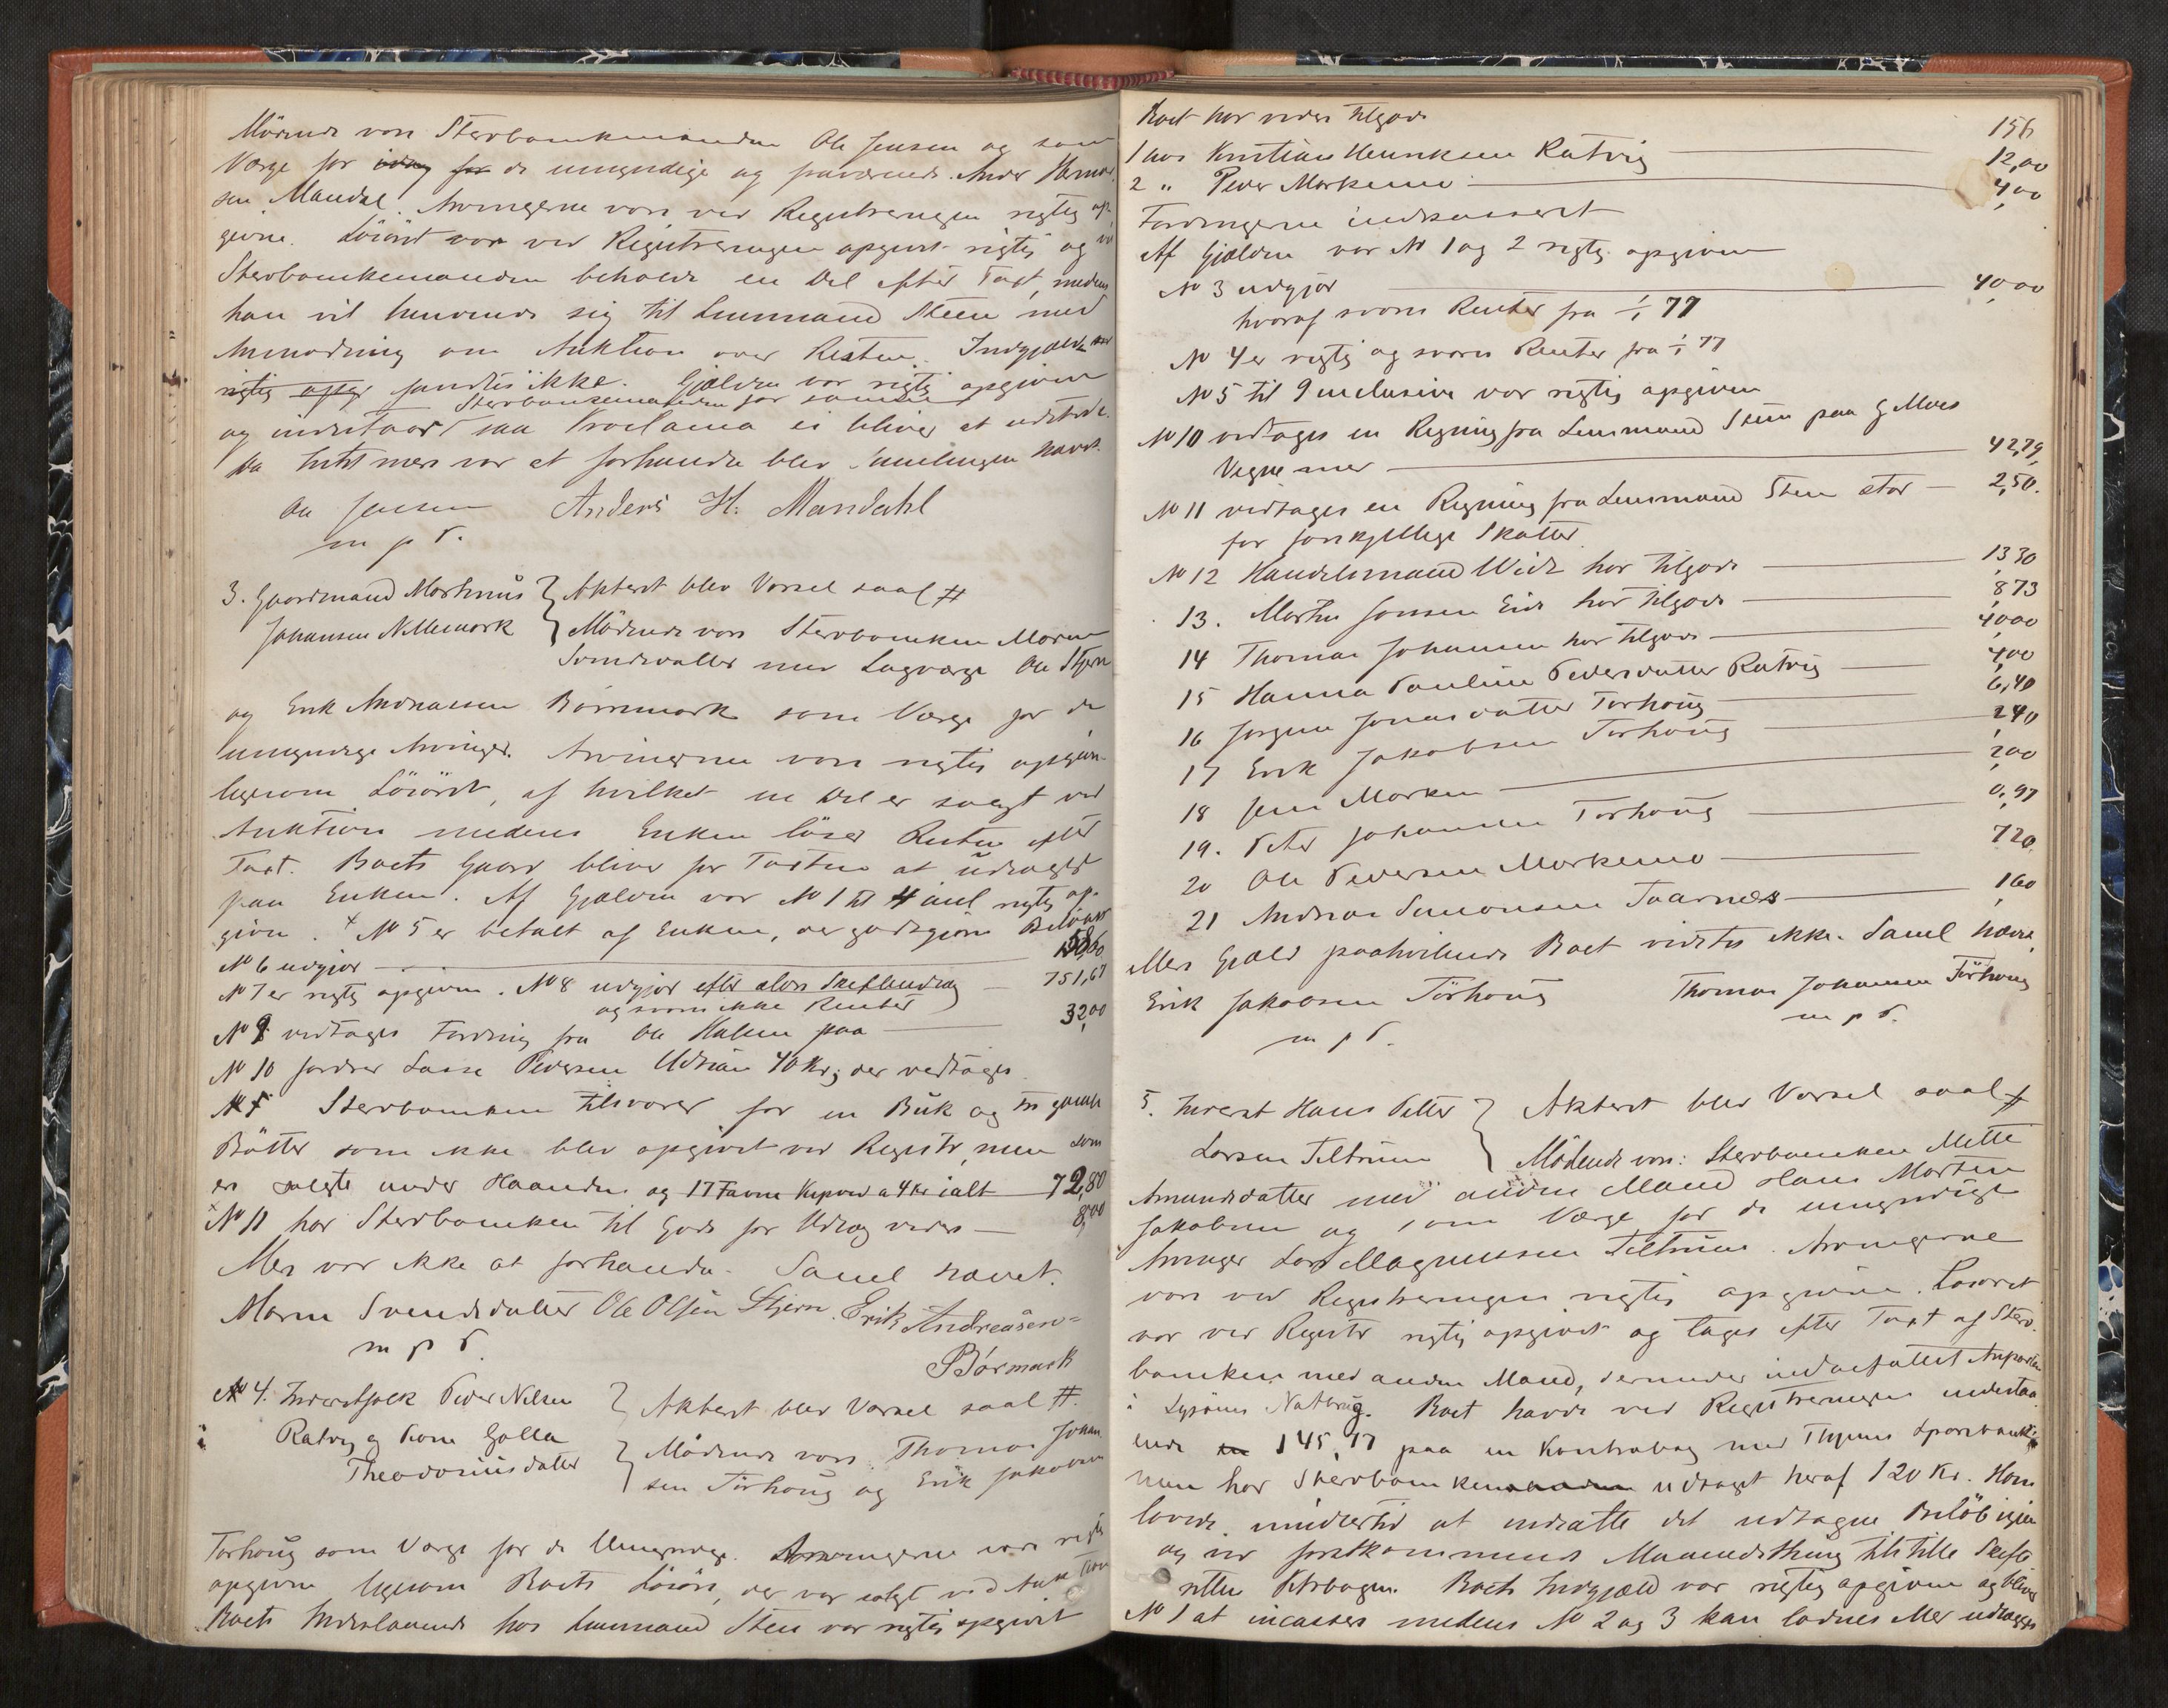 Mödende vare Stervboenkemanden Ole Jensen og som
Værge for de umyndige og fraværende Anders Herman-
sen Mandal. Arvingerne vare ved Registreringen rigtig op-
givne. Lösöret var ved Registreringen opgivet rigtig og vil
Stervboenkemanden beholde en Del efter Taxt, medens
han vil henvende sig til Lensmand Steen med
Anmodning om Auktion over Resten. Indgjæld
fandtes ikke. Gjælden var rigtig opgiven
Stervboenkemanden for samme
og indestaar saa Proclama ei bliver at udstede.
Da Intet mere var at forhandle blev Samlingen hævet.
Ole Jensen Anders H. Mandahl
m p P.
3. Gaardmand Martinus Akteret blev Varsel saal #
Johansen Nellemark Mödende vare Stervboenken Maren
Svendsdatter med Lagværge Ole Stjern
og Erik Andreassen Börmark som Værge for de
umyndige Arvinger. Arvingerne vare rigtig opgivne
ligesom Lösöret, af hvilket en Del er solgt ved
Auktion medens Enken löser Resten efter
Taxt. Boets Gaard bliver for Taxten at udlægge
paa Enken. Af Gjælden var No 1 til 4 incl rigtig op-
given. No 5 er betalt af Enken, der godtgjöres Belöbet
No 6 udgjör
No 7 er rigtig opgiven. No 8 udgjör efter Skifteudlæg 751,67
og svares ikke Renter
No 9 vedtages Fordring fra Ole Halsen paa 32,00
No 10 fordrer Lasse Pedersen Udsian 40 Kr; der vedtages
Stervboenken tilsvarer for en Buk og to gamle
Bötter som ikke blev opgivet ved Registr, men som
er solgte under Haanden og 17 Favne Kipved a 4 Kr ialt 72,80
No 11 har Stervboenken til Gode for Udlæg videre 8,00
Mer var ikke at forhandle. Saml hævet.
Maren Svendsdatter Ole Olsen Stjern. Erik Andreasen=
m p P. Börmark
No 4. Inderstfolk Peder Nilsen Akteret blev Varsel saal #.
Ratvig og Kone Golla Mödende vare Thomas Johan-
Theodoriusdatter sen Torhoug og Erik Jakobsen
Torhoug som Værge for de Umyndige. Arvingerne vare rigtig
opgivne ligesom Boets Lösöre, der var solgt ved Auktion
Boets Indestaaende hos Lensmand Steen var rigtig opgivet
Boet har videre tilgode 156
1 hos Kristian Henriksen Ratvig 12,00
2 " Peder Markemo 4,00
Fordringerne indkasseret
Af Gjælden var No 1 og 2 rigtig opgiven
No 3 udgjör 40,00
hvoraf svares Renter fra 1/1 77
No 4 er rigtig og svares Renter fra 1/1 77
No 5 til 9 inclusive var rigtig opgiven
No 10 vedtages en Regning fra Lensmand Steen paa G Moes
Vegne med 42,79,
No 11 vedtages en Regning fra Lensmand Steen stor 2,50.
for forskjellige Skatter
No 12 Handelsmand Wide har tilgode 13,30
13. Martin Jonsen Eide har tilgode 8,73
14 Thomas Johansen har tilgode 40,00
15 Hanna Pauline Pedersdatter Ratvig 4,00
16 Jörgine Jonasdatter Torhoug 6,40
17 Erik Jakobsen Torhoug 2,40
18 Jens Morken 2,00
19. Peter Johansen Torhoug 0,97
20 Ole Pedersen Markemo 7,20
21 Andreas Simonsen Taarnes 1,60
Mere Gjæld paahvilende Boet vidstes ikke. Saml hævet.
Erik Jakobsen Törhoug Thomas Johansen Törhoug
m p P. m p P.
5. Inderst Hans Petter Akteret blev Varsel saal #
Larsen Teltrum Mödende vare: Stervboenken Mette
Amundsdatter med anden Mand Hans Morten
Jakobsen og som Værge for de umyndige
Arvinger Lars Magnussen Teltrum. Arvingerne
vare ved Registreringen rigtig opgivne. Lösöret
var ved Registr rigtig opgivet og tages efter Taxt af Stervs-
boenken med anden Mand, derunder indbefattet Anparten
i Lysöens Notbrug. Boet havde ved Registreringen indestaa-
ende 145,17 paa en Kontrabog med Sparebank;
men har Stervboenken udtaget heraf 120 Kr. Hans
lovede imidlertid at indsætte det udtagne Belöb igjen
og ved förstkommende Maanedsthing tilstille Skifte
retten Kontrabogen. Boets Indgjæld var rigtig opgiven og bliver
No 1 at incassere medens No 2 og 3 kan lodnes eller udlægges